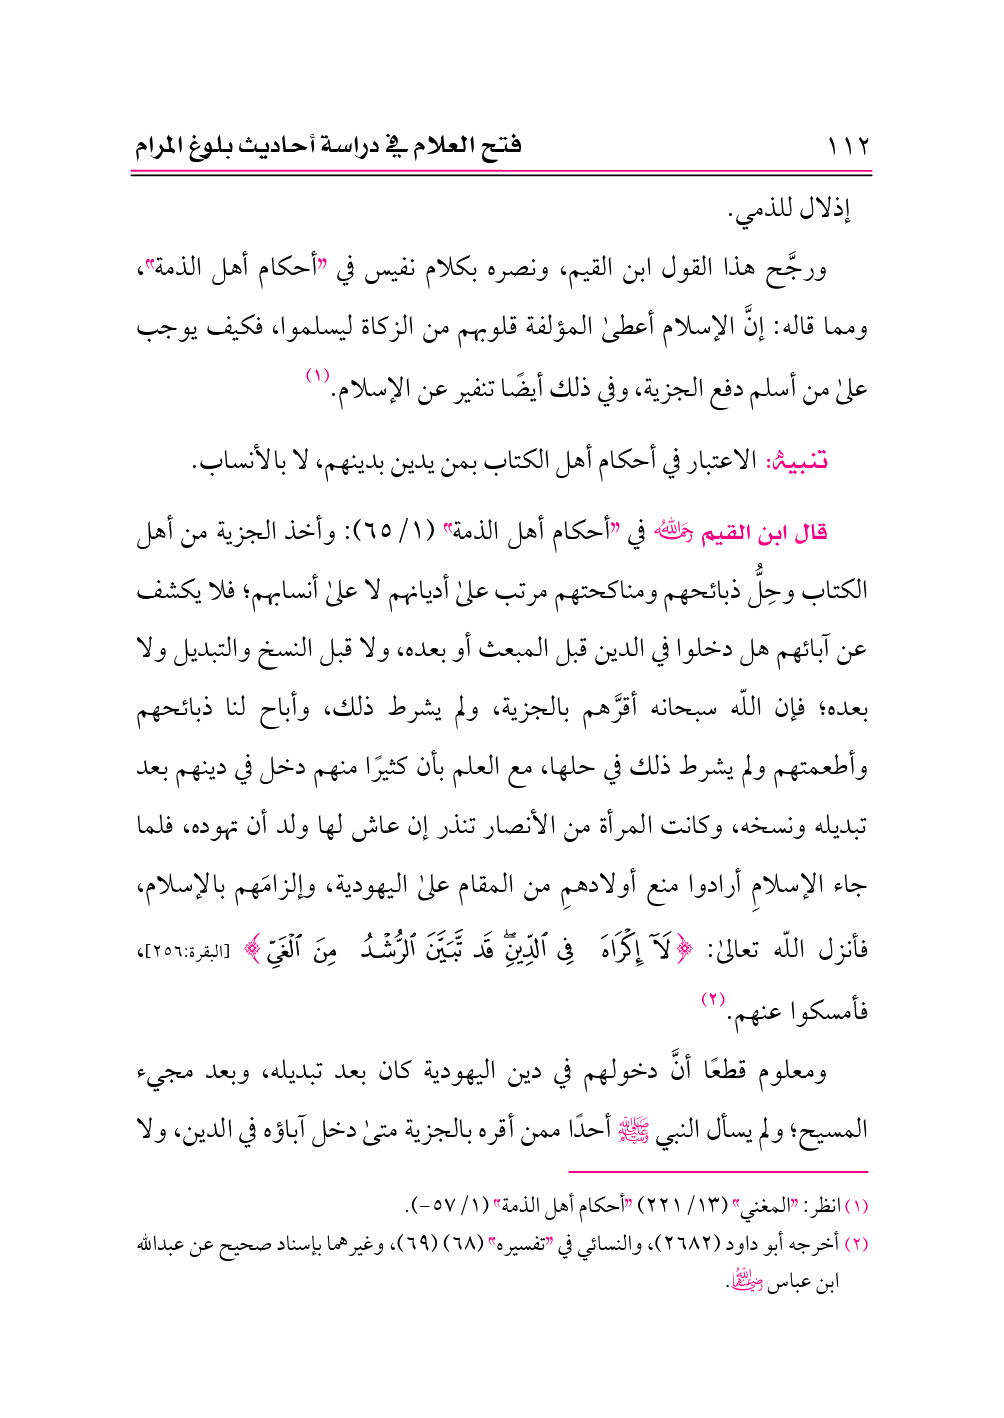 ١١٢ فتح العلام في دراسة أحاديث بلوغ المرام
إذلال للذمي.
ورجَّح هذا القول ابن القيم، ونصره بكلام نفيس في "أحكام أهل الذمة"،
ومما قاله: إنَّ الإسلام أعطىٰ المؤلفة قلوبهم من الزكاة ليسلموا، فكيف يوجب
علىٰ من أسلم دفع الجزية، وفي ذلك أيضًا تنفير عن الإسلام.(١)
تنبيهٌ: الاعتبار في أحكام أهل الكتاب بمن يدين بدينهم، لا بالأنساب.
قال ابن القيم رحمه الله في "أحكام أهل الذمة" (١/ ٦٥): وأخذ الجزية من أهل
الكتاب وحِلُّ ذبائحهم ومناكحتهم مرتب علىٰ أديانهم لا علىٰ أنسابهم؛ فلا يكشف
عن آبائهم هل دخلوا في الدين قبل المبعث أو بعده، ولا قبل النسخ والتبديل ولا
بعده؛ فإن الله سبحانه أقرَّهم بالجزية، ولم يشرط ذلك، وأباح لنا ذبائحهم
وأطعمتهم ولم يشرط ذلك في حلها، مع العلم بأن كثيرًا منهم دخل في دينهم بعد
تبديله ونسخه، وكانت المرأة من الأنصار تنذر إن عاش لها ولد أن تهوده، فلما
جاء الإسلامِ أرادوا منع أولادهمِ من المقام علىٰ اليهودية، وإلزامَهم بالإسلام،
فأنزل الله تعالىٰ: ﴿لَآ إِكْرَاهَ فِى ٱلدِّينِۖ قَد تَّبَيَّنَ ٱلرُّشْدُ مِنَ ٱلْغَىِّ﴾ [البقرة:٢٥٦]،
فأمسكوا عنهم.(٢)
ومعلوم قطعًا أنَّ دخولهم في دين اليهودية كان بعد تبديله، وبعد مجيء
المسيح؛ ولم يسأل النبي ﷺ أحدًا ممن أقره بالجزية متىٰ دخل آباؤه في الدين، ولا
(١) انظر: "المغني" (١٣/ ٢٢١) "أحكام أهل الذمة" (١/ ٥٧-).
(٢) أخرجه أبو داود (٢٦٨٢)، والنسائي في "تفسيره" (٦٨) (٦٩)، وغيرهما بإسناد صحيح عن عبدالله
ابن عباس رضي الله عنهما.